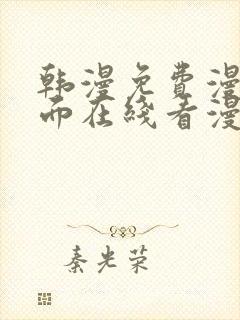 韩漫免费漫
而在线看漫
秦光荣